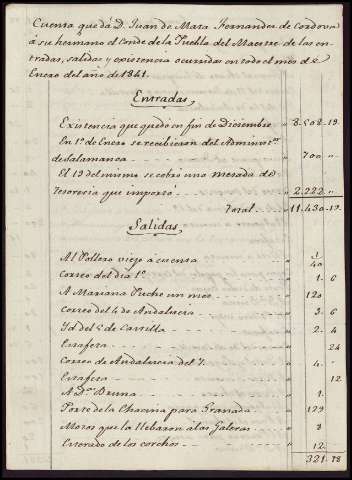 Cuenta que da D. Juan de Mata Fernandez de Cordova
á su hermano el Conde de la Puebla del Maestre de las en-
tradas, salidas y existencia ocurridas en todo el mes de
Enero del año de 1841.
Entradas
Existencia que quedó en fin de Diciembre " 8.508-19.
En 1º de Enero se recibieron del Administ.or
de Salamanca " 700 "
El 19 del mismo se cobró una mesada de
Tesoreria que importó " 2.222 "
Total " 11.430-19
Salidas
Al Pollero viejo á cuenta " 40
Correo del dia 1º " 1. 6
A Mariana Puche un mes " 120
Correo del 4 de Andalucia " 3. 6
Yd del 5 de Castilla " 2. 4
Estafeta " 24
Correo de Andalucia del 7. " 4. "
Estafeta " 12
A D.ª Bruna " 1.
Porte de la Chacina para Granada " 129
Mozos que la llebaron á las Galeras " 8
Esterado de los corchos " 12
321. 78